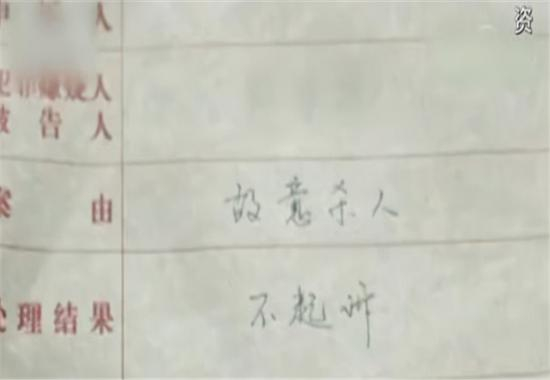 资
人
犯罪嫌疑人
被告人
案由 故意杀人
处理结果 不起诉